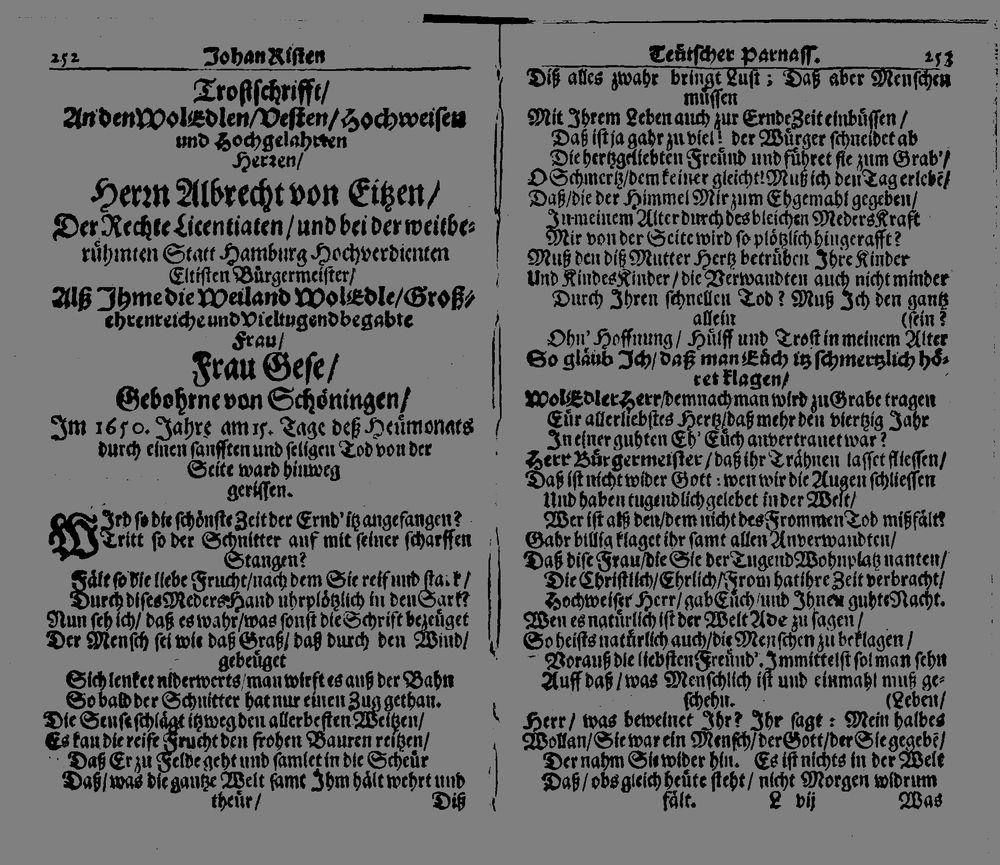 252 Johan Risten
Trostschrifft/
An den WolEdlen/Vesten/Hochweisen
und Hochgelahrten
Herren/
Herrn Albrecht von Eitzen/
Der Rechte Licentiaten/und bei der weitbe-
rühmten Statt Hamburg Hochverdienten
Eltisten Bürgermeister/
Alß Ihme die Weiland WolEdle/Groß-
ehrenreiche und Vieltugendbegabte
Frau/
Frau Gese/
Gebohrne von Schöningen/
Im 1650. Jahre am 15. Tage deß Heümonats
durch einen sanfften und seligen Tod von der
Seite ward hinweg
gerissen.
WIrd so die schönste Zeit der Ernd' itz angefangen?
Tritt so der Schnitter auf mit seiner scharffen
Stangen?
Fält so die liebe Frucht/nach dem Sie reif und stark/
Durch dises MedersHand uhrplötzlich in den Sark?
Nun seh ich/ daß es wahr/was sonst die Schrift bezeüget
Der Mensch sei wie daß Graß/ daß durch den Wind/
gebeüget
Sich lenket niderwerts/man wirft es auß der Bahn
So bald der Schnitter hat nur einen Zug gethan.
Die Sense schlägt itz weg den allerbesten Weitzen/
Es kan die reife Frucht den frohen Bauren reitzen/
Daß Er zu Felde geht und samlet in die Scheür
Daß/was die gantze Welt samt Ihm hält wehrt und
theür/ Diß
Teütscher Parnass. 253
Diß alles zwahr bringt Lust; Daß aber Menschen
müssen
Mit Ihrem Leben auch zur ErndeZeit einbüssen/
Daß ist ja gahr zu viel! der Würger schneidet ab
Die hertzgeliebten Freünd und führet sie zum Grab'/
O Schmertz/dem keiner gleicht! Muß ich den Tag erlebē/
Daß/die der Himmel Mir zum Ehgemahl gegeben/
In meinem Alter durch des bleichen MedersKraft
Mir von der Seite wird so plötzlich hingerafft?
Muß den diß Mutter Hertz betrüben Ihre Kinder
Und KindesKinder/die Verwandten auch nicht minder
Durch Ihren schnellen Tod? Muß Ich den gantz
allein (sein?
Ohn' Hoffnung/ Hülff und Trost in meinem Alter
So gläub Ich/daß man Eüch itz schmertzlich hö-
ret klagen/
WolEdler Herr/demnach man wird zu Grabe tragen
Eür allerliebstes Hertz/daß mehr den viertzig Jahr
In einer guhten Eh' Eüch anvertrauet war?
Herr Bürgermeister/daß ihr Trähnen lasset fliessen/
Daß ist nicht wider Gott: wen wir die Augen schliessen
Und haben tugendlich gelebet in der Welt/
Wer ist alß den/dem nicht des Frommen Tod mißfält?
Gahr billig klaget ihr samt allen Anverwandten/
Daß dise Frau/die Sie der Tugend Wohnplatz nanten/
Die Christlich/Ehrlich/From hat ihre Zeit verbracht/
Hochweiser Herr/gab Eüch/und Ihnen guhte Nacht.
Wen es natürlich ist der Welt Ade zu sagen/
So heists natürlich auch/die Menschen zu beklagen/
Vorauß die liebsten Freünd'. Immittelst sol man sehn
Auff daß/was Menschlich ist und einmahl muß ge-
schehn. (Leben/
Herr/ was beweinet Ihr? Ihr sagt: Mein halbes
Wollan/Sie war ein Mensch/der Gott/der Sie gegebē/
Der nahm Sie wider hin. Es ist nichts in der Welt
Daß/obs gleich heüte steht/ nicht Morgen widrum
fält. L vij Was